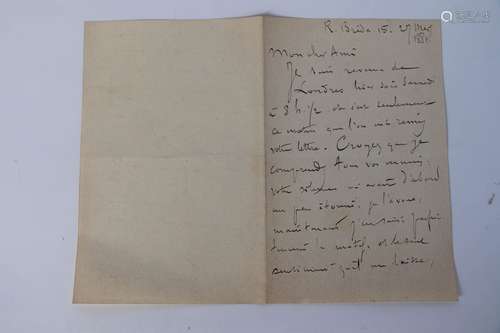 R. Bréda 15. 27 Mai
Mon cher Ami
Je suis revenu de
Londres hier soir Samedi
à 8 h. 1/2 et c'est seulement
ce matin que l'on m'a remis
votre lettre. Croyez que je
comprends tous vos ennuis,
votre m'avait d'abord
un peu étonné, je l'avoue,
maintenant j'en sais parfai
tement le motif et le seul
sentiment qu'il me laisse,